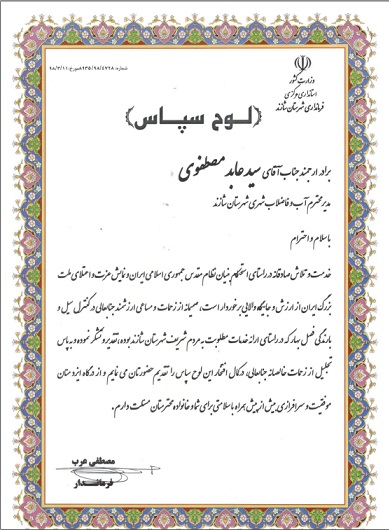 شماره: ۹۳۵/۹۸/۴۷۲۸ مورخ: ۹۸/۳/۱۱
وزارت کشور
استانداری مرکزی
فرمانداری شهرستان شازند
(لوح سپاس)
برادر ارجمند جناب آقای سید عابد مصطفوی
مدیر محترم آب و فاضلاب شهری شهرستان شازند
با سلام و احترام
خدمت و تلاش صادقانه در راستای استحکام بنیان نظام مقدس جمهوری اسلامی ایران و نمایش عزت و اعتلای ملت
بزرگ ایران از ارزش و جایگاه والایی برخوردار است، صمیمانه از زحمات و مساعی ارزشمند جنابعالی در کنترل سیل و
بارندگی فصل بهار که در راستای ارائه خدمات مطلوب به مردم شریف شهرستان شازند بوده، تقدیر و تشکر نموده و به پاس
تجلیل از زحمات خالصانه جنابعالی، در کمال افتخار این لوح سپاس را تقدیم حضورتان می نمایم و از درگاه ایزد منان
موفقیت و سرافرازی بیش از پیش همراه با سلامتی برای شما و خانواده محترمتان مسئلت دارم.
مصطفی عرب
فرماندار